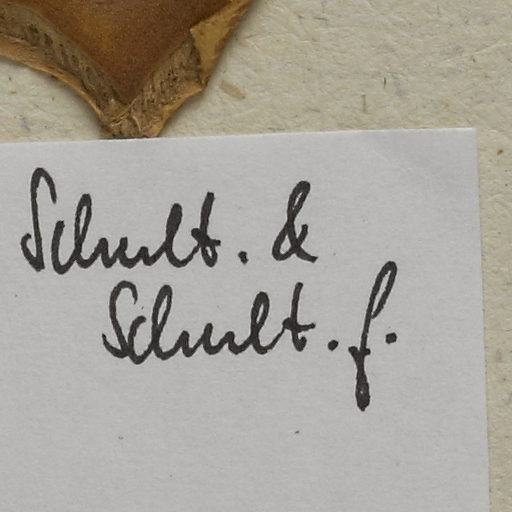 Schult. &
Schult. f.